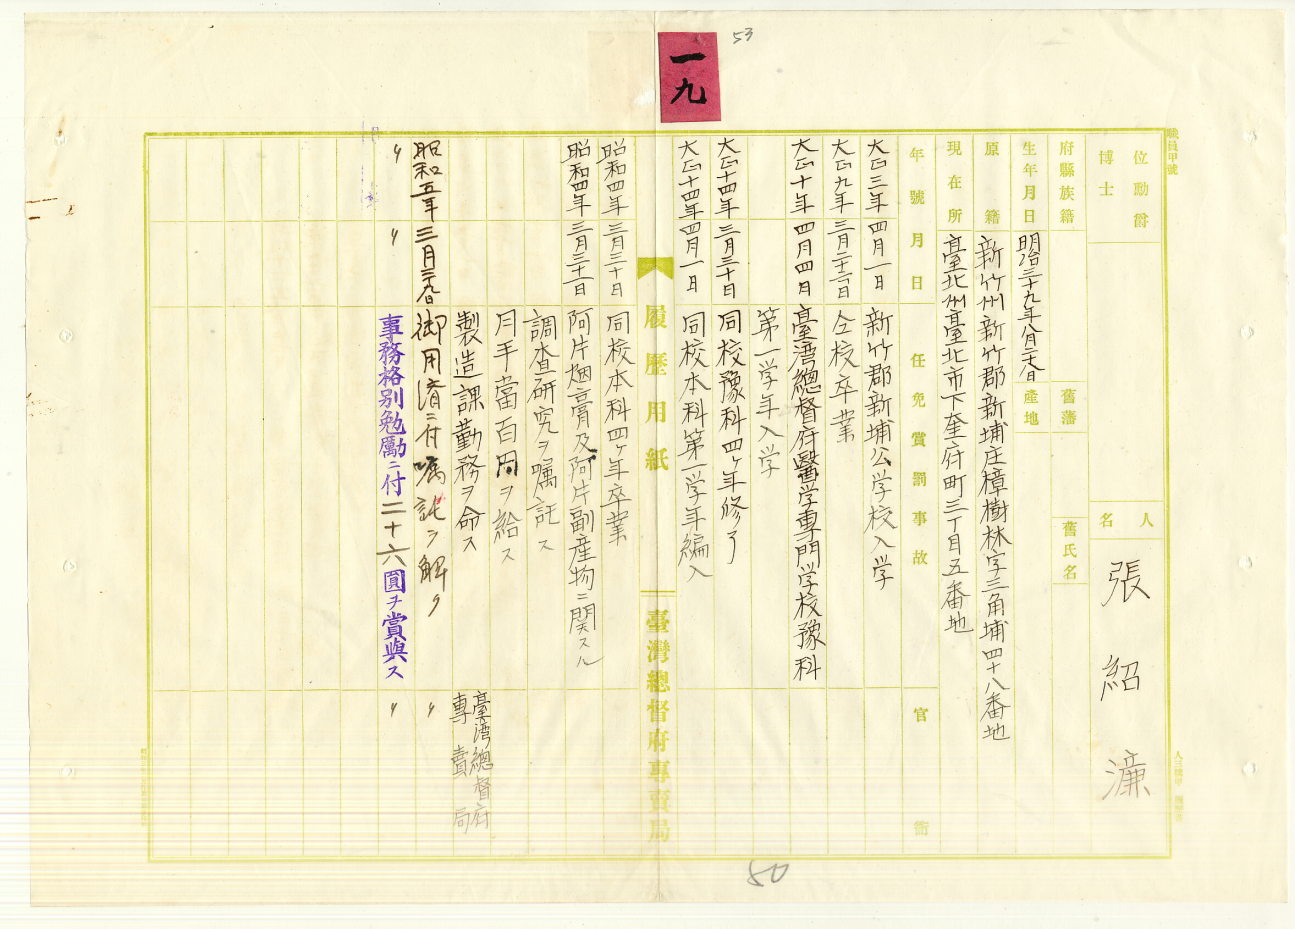 53
一九
職員甲號
位勳爵
博士
人名
張紹濂
府縣族籍
舊藩
舊氏名
生年月日
明治三十九年八月二十八日
產地
原籍
新竹州新竹郡新埔庄樟樹林字三角埔四十八番地
現在所
臺北州臺北市下奎府町三丁目五番地
年號月日
任免賞罰事故
官衙
大正三年四月一日
新竹郡新埔公学校入学
大正九年三月二十二日
仝校卒業
大正十年四月四日
臺湾總督府醫学專門学校豫科
第一学年入学
大正十四年三月三十日
同校豫科四ヶ年修了
大正十四年四月一日
同校本科第一学年編入
履歷用紙
臺灣總督府專賣局
昭和四年三月三十日
同校本科四ヶ年卒業
昭和四年三月三十一日
阿片烟膏及阿片副産物ニ関スル
調査研究ヲ嘱託ス
月手當百円ヲ給ス
製造課勤務ヲ命ス
臺湾總督府
專賣局
昭和五年三月三十九日
御用済ニ付嘱託ヲ解ク
〃
〃
〃
事務格別勉勵ニ付二十六圓ヲ賞與ス
〃
50